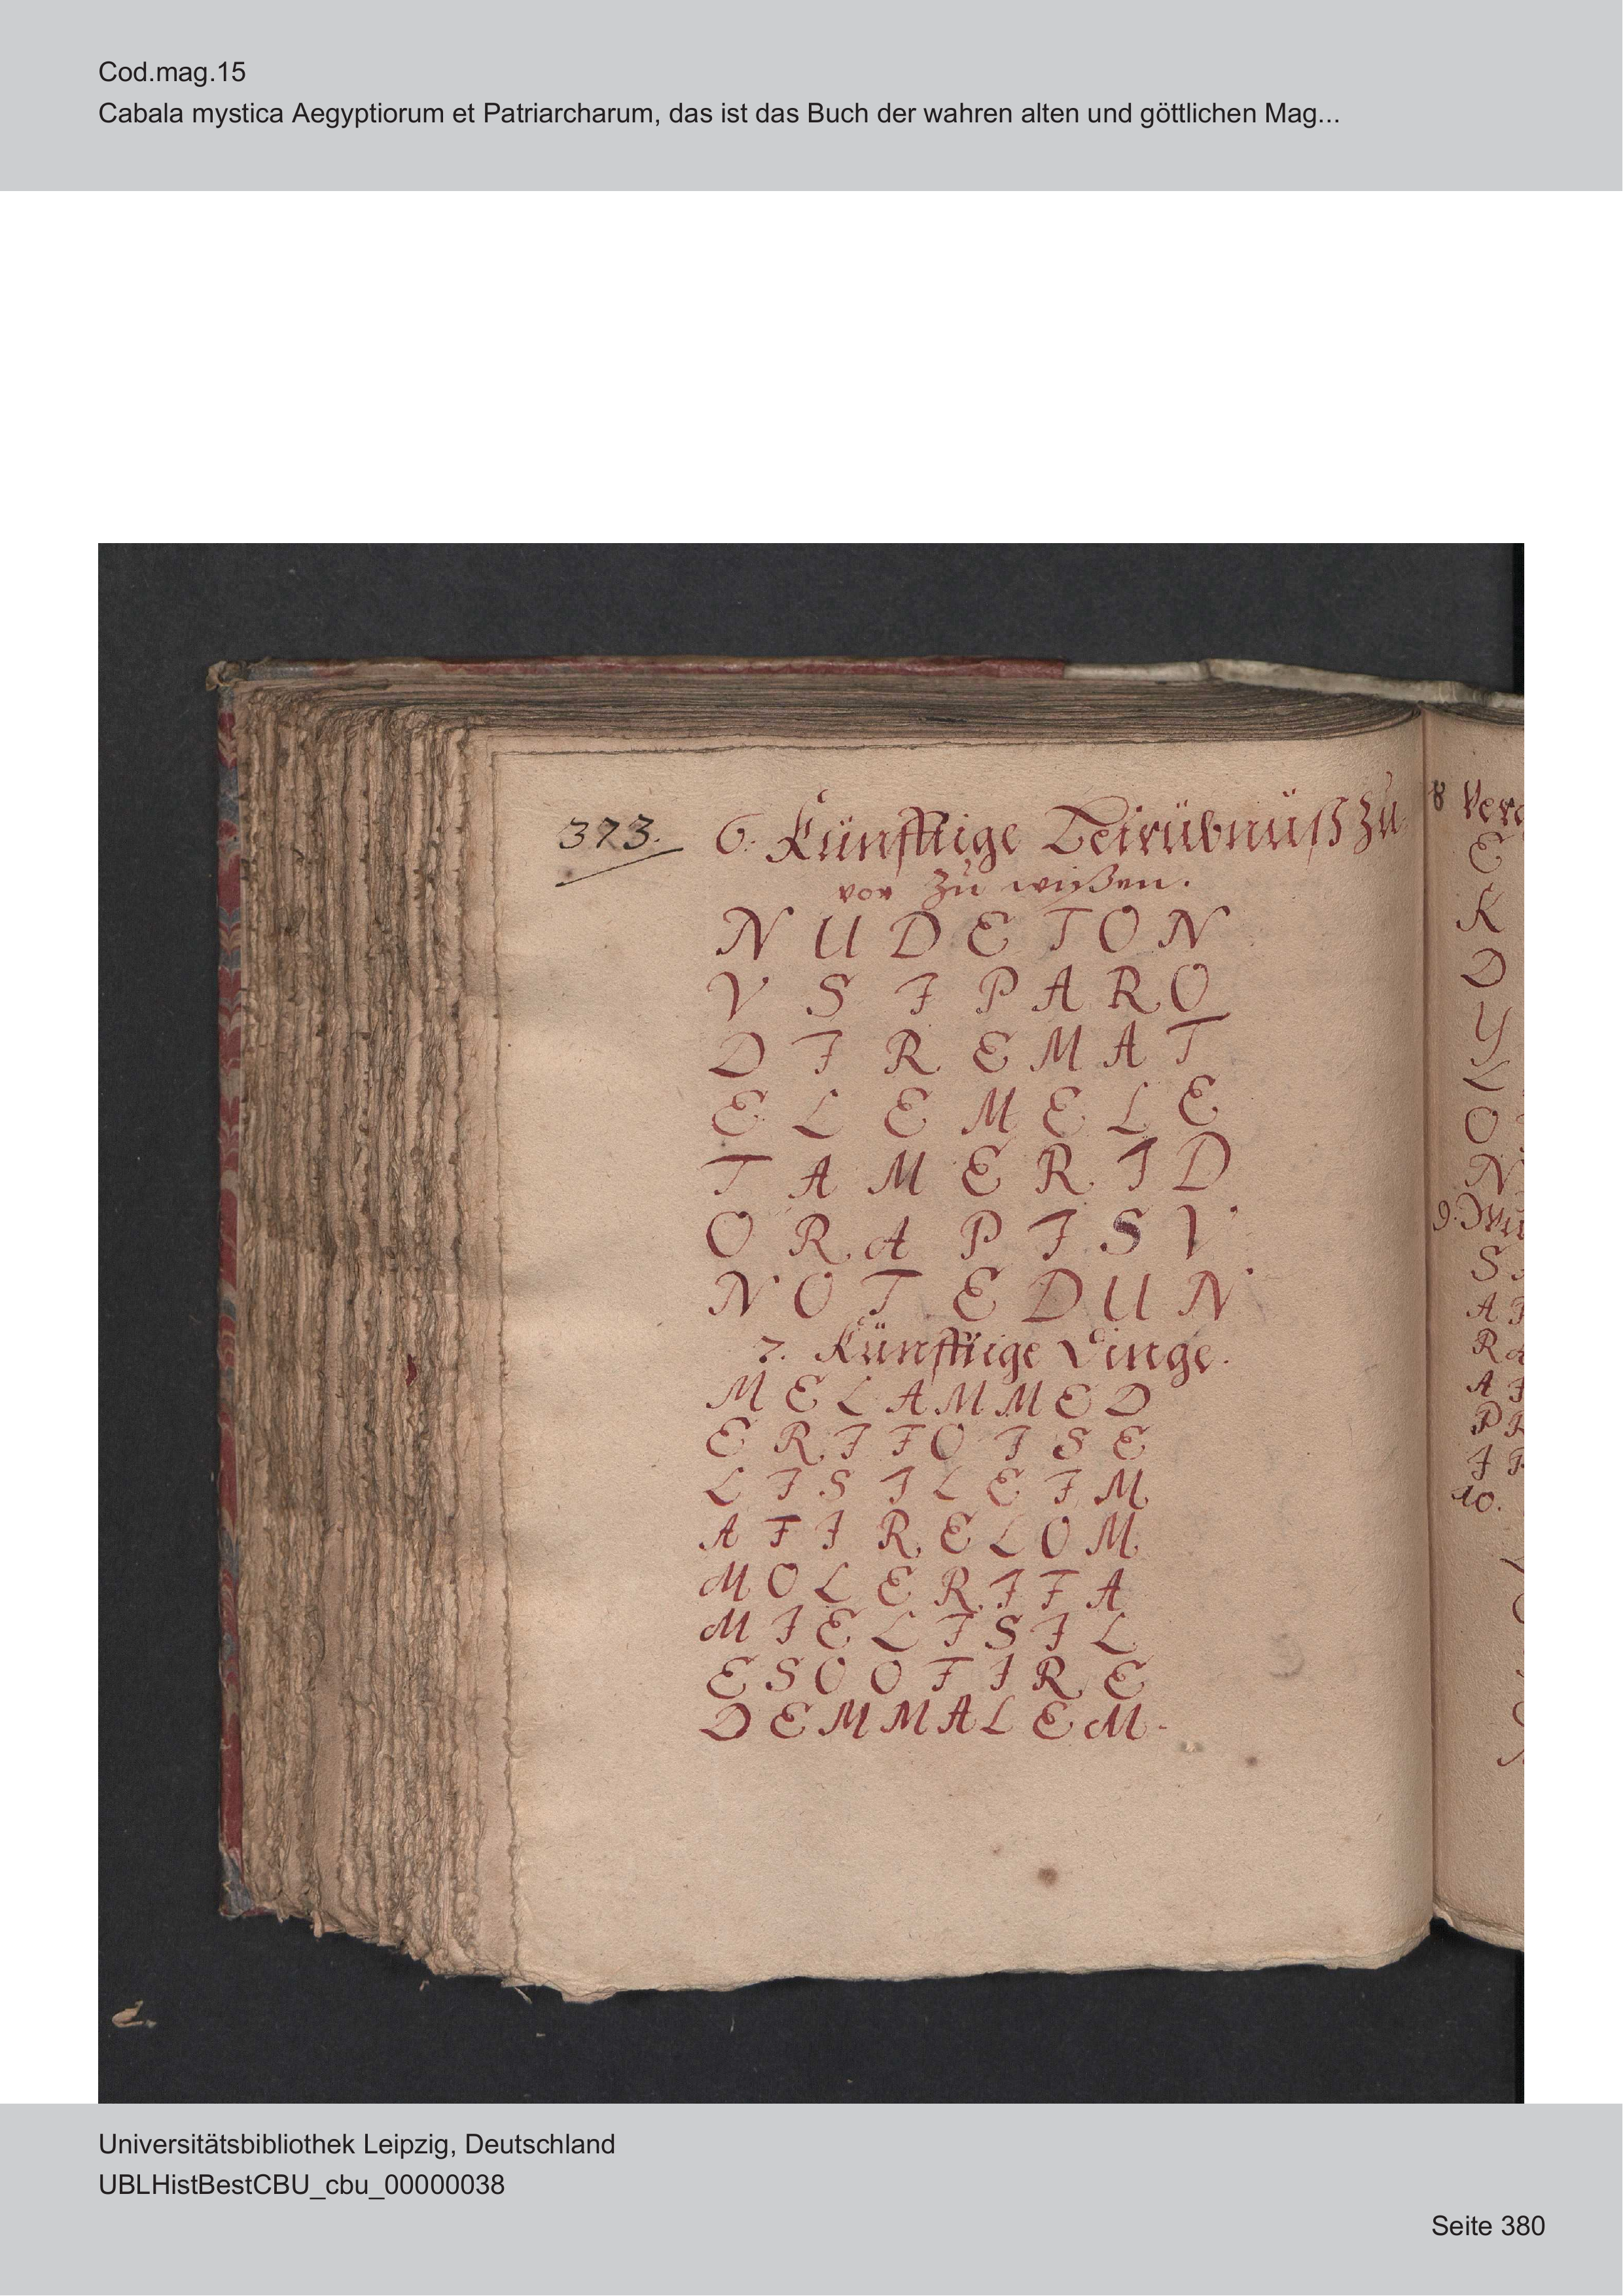 Cod.mag.15
Cabala mystica Aegyptiorum et Patriarcharum, das ist das Buch der wahren alten und göttlichen Mag...
373. 6. Künfftige Betrübnüß zu
vor zu wißen.
N U D E T O N
V S I P A R O
D I R E M A T
E L E M E L E
T A M E R I D
O R A P I S V
N O T E D U N
7. Künfftige Dinge.
M E L A M M E D
E R I F O I S E
L I S I L E I M
A F I R E L O M
M O L E R I F A
M I E L I S I L
E S O O F I R E
D E M M A L E M
8
E
K
D
Y
L
O
N
9.
S
A
R
A
P
I
10.
Universitätsbibliothek Leipzig, Deutschland
UBLHistBestCBU_cbu_00000038
Seite 380